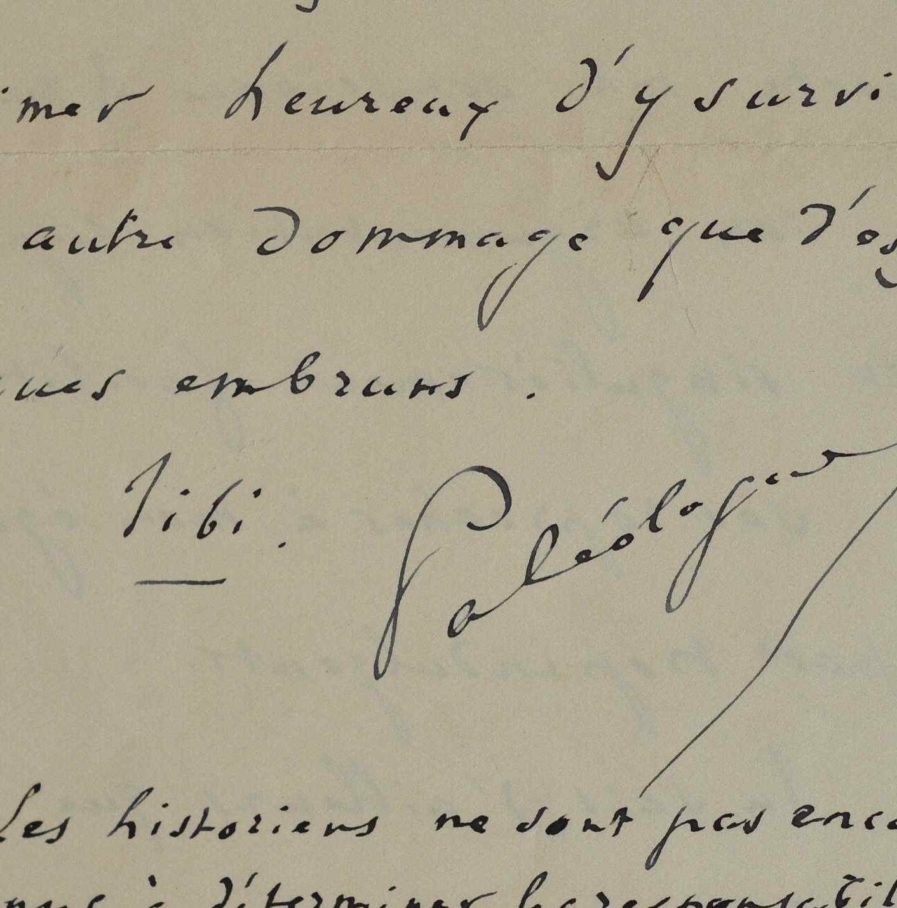 imer heureux d'y survi
autre dommage que d'es
ques embruns.
Tibi.
Paléologue
Les historiens ne sont pas enco
nus à déterminer la responsabil